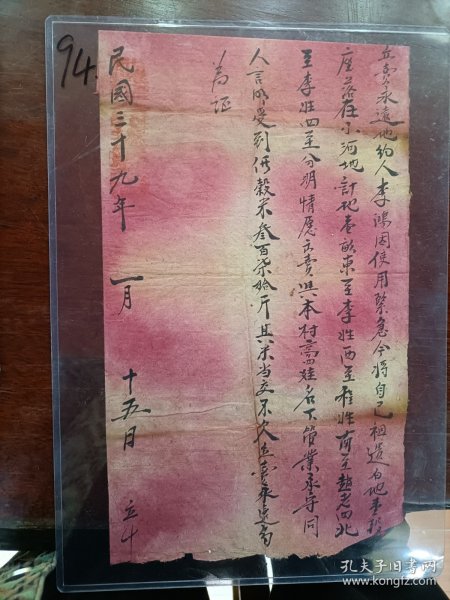 立賣永遠地約人李鴻因使用緊急今將自己祖遺白地壹段
座落在小河地計地壹畝東至李姓西至程姓南至趙老四北
至李姓四至分明情愿立賣與本村高四娃名下管業承守同
人言明受到價穀米叁百柒拾斤其米当交不欠立賣永遠为
为証
民國三十九年 一月 十五日 立
94
孔夫子旧书网
www.kongfz.com